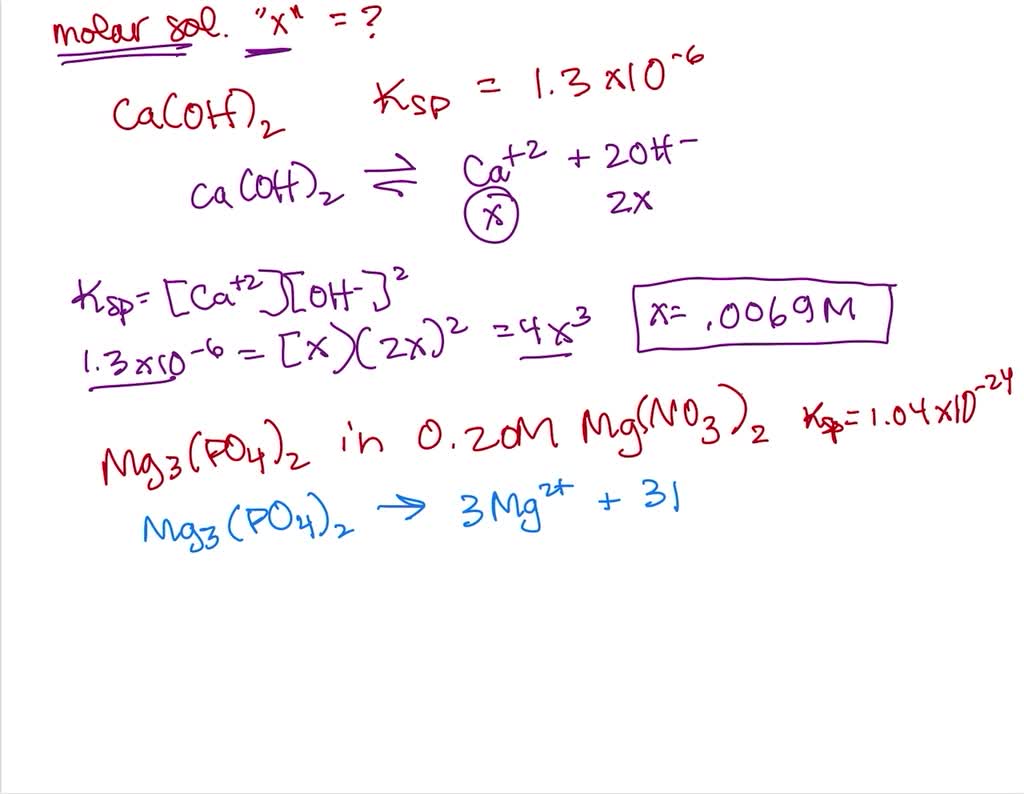 molar sol. "x" = ?
Ca(OH)₂ Ksp = 1.3 x10⁻⁶
Ca(OH)₂ ⇌ Ca⁺² + 2OH⁻
x 2x
Ksp = [Ca⁺²][OH⁻]²
1.3 x10⁻⁶ = [x)(2x)² = 4x³ x= .0069M
Mg₃(PO₄)₂ in 0.20M Mg(NO₃)₂ Ksp=1.04x10⁻²⁴
Mg₃(PO₄)₂ → 3Mg²⁺ + 3